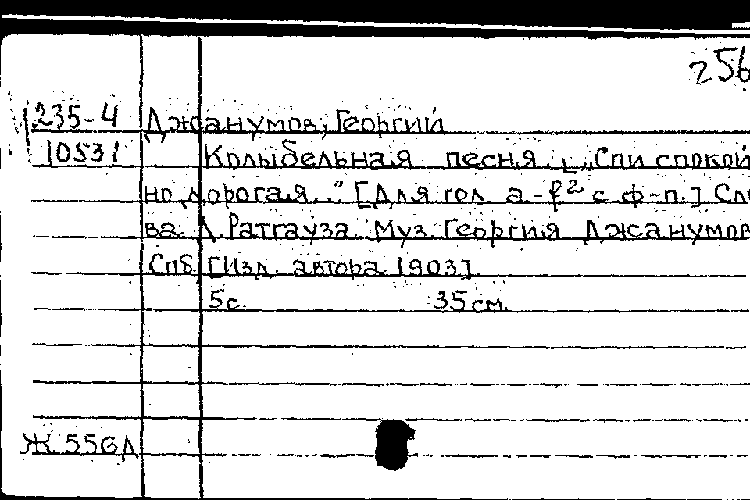 256
235-4 Джанумов, Георгий
10531 Колыбельная песня. „Спи спокой
но, дорогая.." [Для гол. a.-f² с ф-п.] Сло
ва Д. Ратгауза. Муз. Георгия Джанумов
Спб. [Изд. автора. 1903].
5 с. 35 см.
Ж. 556Д